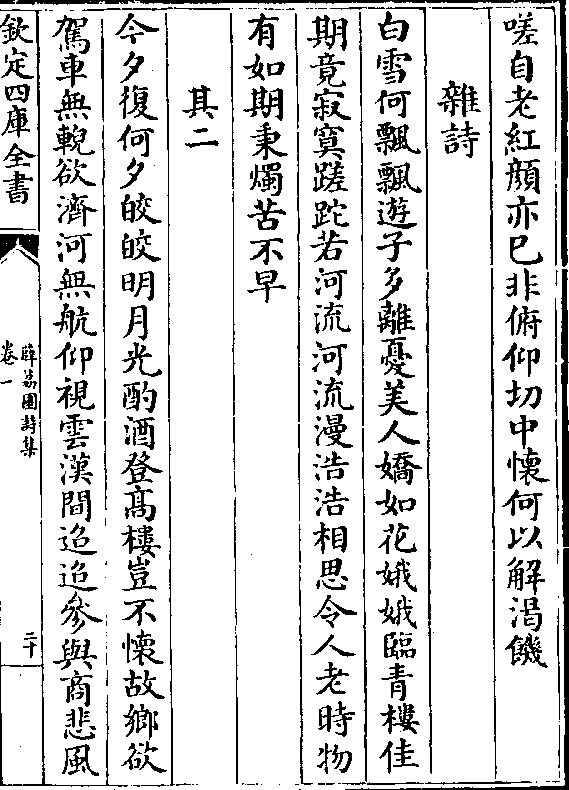 嗟自老紅顔亦已非俯仰切中懷何以解渴饑
雜詩
白雪何飄飄遊子多離憂美人嬌如花娥娥臨青樓佳
期竟寂寞蹉跎若河流河流漫浩浩相思令人老時物
有如期秉燭苦不早
其二
今夕復何夕皎皎明月光酌酒登高樓豈不懷故鄉欲
駕車無輗欲濟河無航仰視雲漢間迢迢參與商悲風
欽定四庫全書
薜荔園詩集
卷一
二十